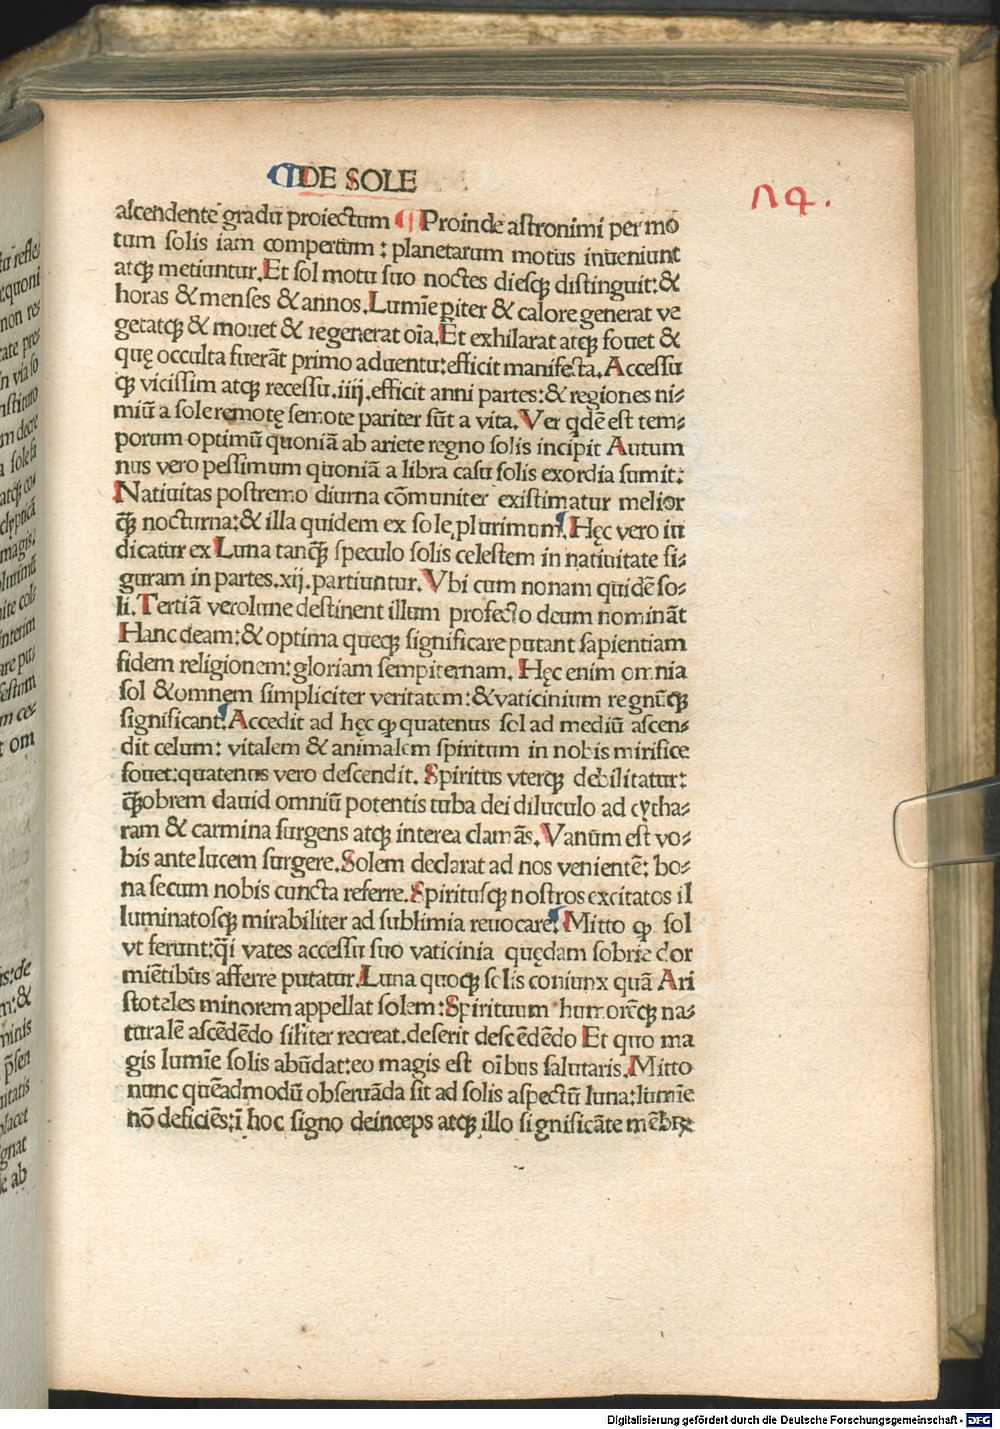 ¶DE SOLE
ꝛ4.
aſcendente gradu proiectum ¶ Proinde aſtronimi per mo
tum ſolis iam compertum : planetarum motus inueniunt
atqꝫ metiuntur. Et ſol motu ſuo noctes dieſqꝫ diſtinguit: &
horas & menſes & annos. Lumīe p̱iter & calore generat ve
getatqꝫ & mouet & regenerat oīa. Et exhilarat atqꝫ fouet &
quę occulta fuerāt primo aduentu: efficit manifeſta. Acceſſu
qꝫ viciſſim atqꝫ receſſu .iiij. efficit anni partes: & regiones ni⸗
miū a ſole remotę ſemote pariter ſūt a vita. Ver qdē eſt tem⸗
porum optimū quoniā ab ariete regno ſolis incipit Autum
nus vero peſſimum quoniā a libra caſu ſolis exordia ſumit:
Natiuitas poſtremo diurna cōmuniter exiſtimatur melior
q̄ꝫ nocturna: & illa quidem ex ſole plurimum¶ Hęc vero iu
dicatur ex Luna tanq̄ꝫ ſpeculo ſolis celeſtem in natiuitate fi⸗
guram in partes .xij. partiuntur. Vbi cum nonam quidē ſo⸗
li. Tertiā vero lune deſtinent illum profecto deum nomināt
Hanc deam: & optima queqꝫ ſignificare putant ſapientiam
fidem religionem: gloriam ſempiternam. Hęc enim omnia
ſol & omnem ſimpliciter veritatem: & vaticinium regnūqꝫ
ſignificant¶ Accedit ad hęc ꝙ quatenus ſol ad mediū aſcen⸗
dit celum: vitalem & animalem ſpiritum in nobis mirifice
fouet: quatenus vero deſcendit. Spiritus vterqꝫ debilitatur:
q̄ꝫobrem dauid omniū potentis tuba dei diluculo ad cytha⸗
ram & carmina ſurgens atqꝫ interea clamās. Vanum eſt vo⸗
bis ante lucem ſurgere. Solem declarat ad nos venientē: bo⸗
na ſecum nobis cuncta referre. Spirituſqꝫ noſtros excitatos il
luminatoſqꝫ mirabiliter ad ſublimia reuocare¶ Mitto ꝙ ſol
vt ferunt: q̄i vates acceſſu ſuo vaticinia quędam ſobrie dor
miētibus afferre putatur. Luna quoqꝫ ſolis coniunx quā Ari
ſtoteles minorem appellat ſolem: Spirituum humorēqꝫ na⸗
turalē aſcēdēdo ſiliter recreat. deſerit deſcēdēdo Et quo ma
gis lumīe ſolis abūdat: eo magis eſt oībus ſalutaris. Mitto
nunc quēadmodū obſeruāda ſit ad ſolis aſpectū luna: lumīe
nō deficiēs: ī hoc ſigno deinceps atqꝫ illo ſignificāte mēbꝝ
Digitalisierung gefördert durch die Deutsche Forschungsgemeinschaft - DFG